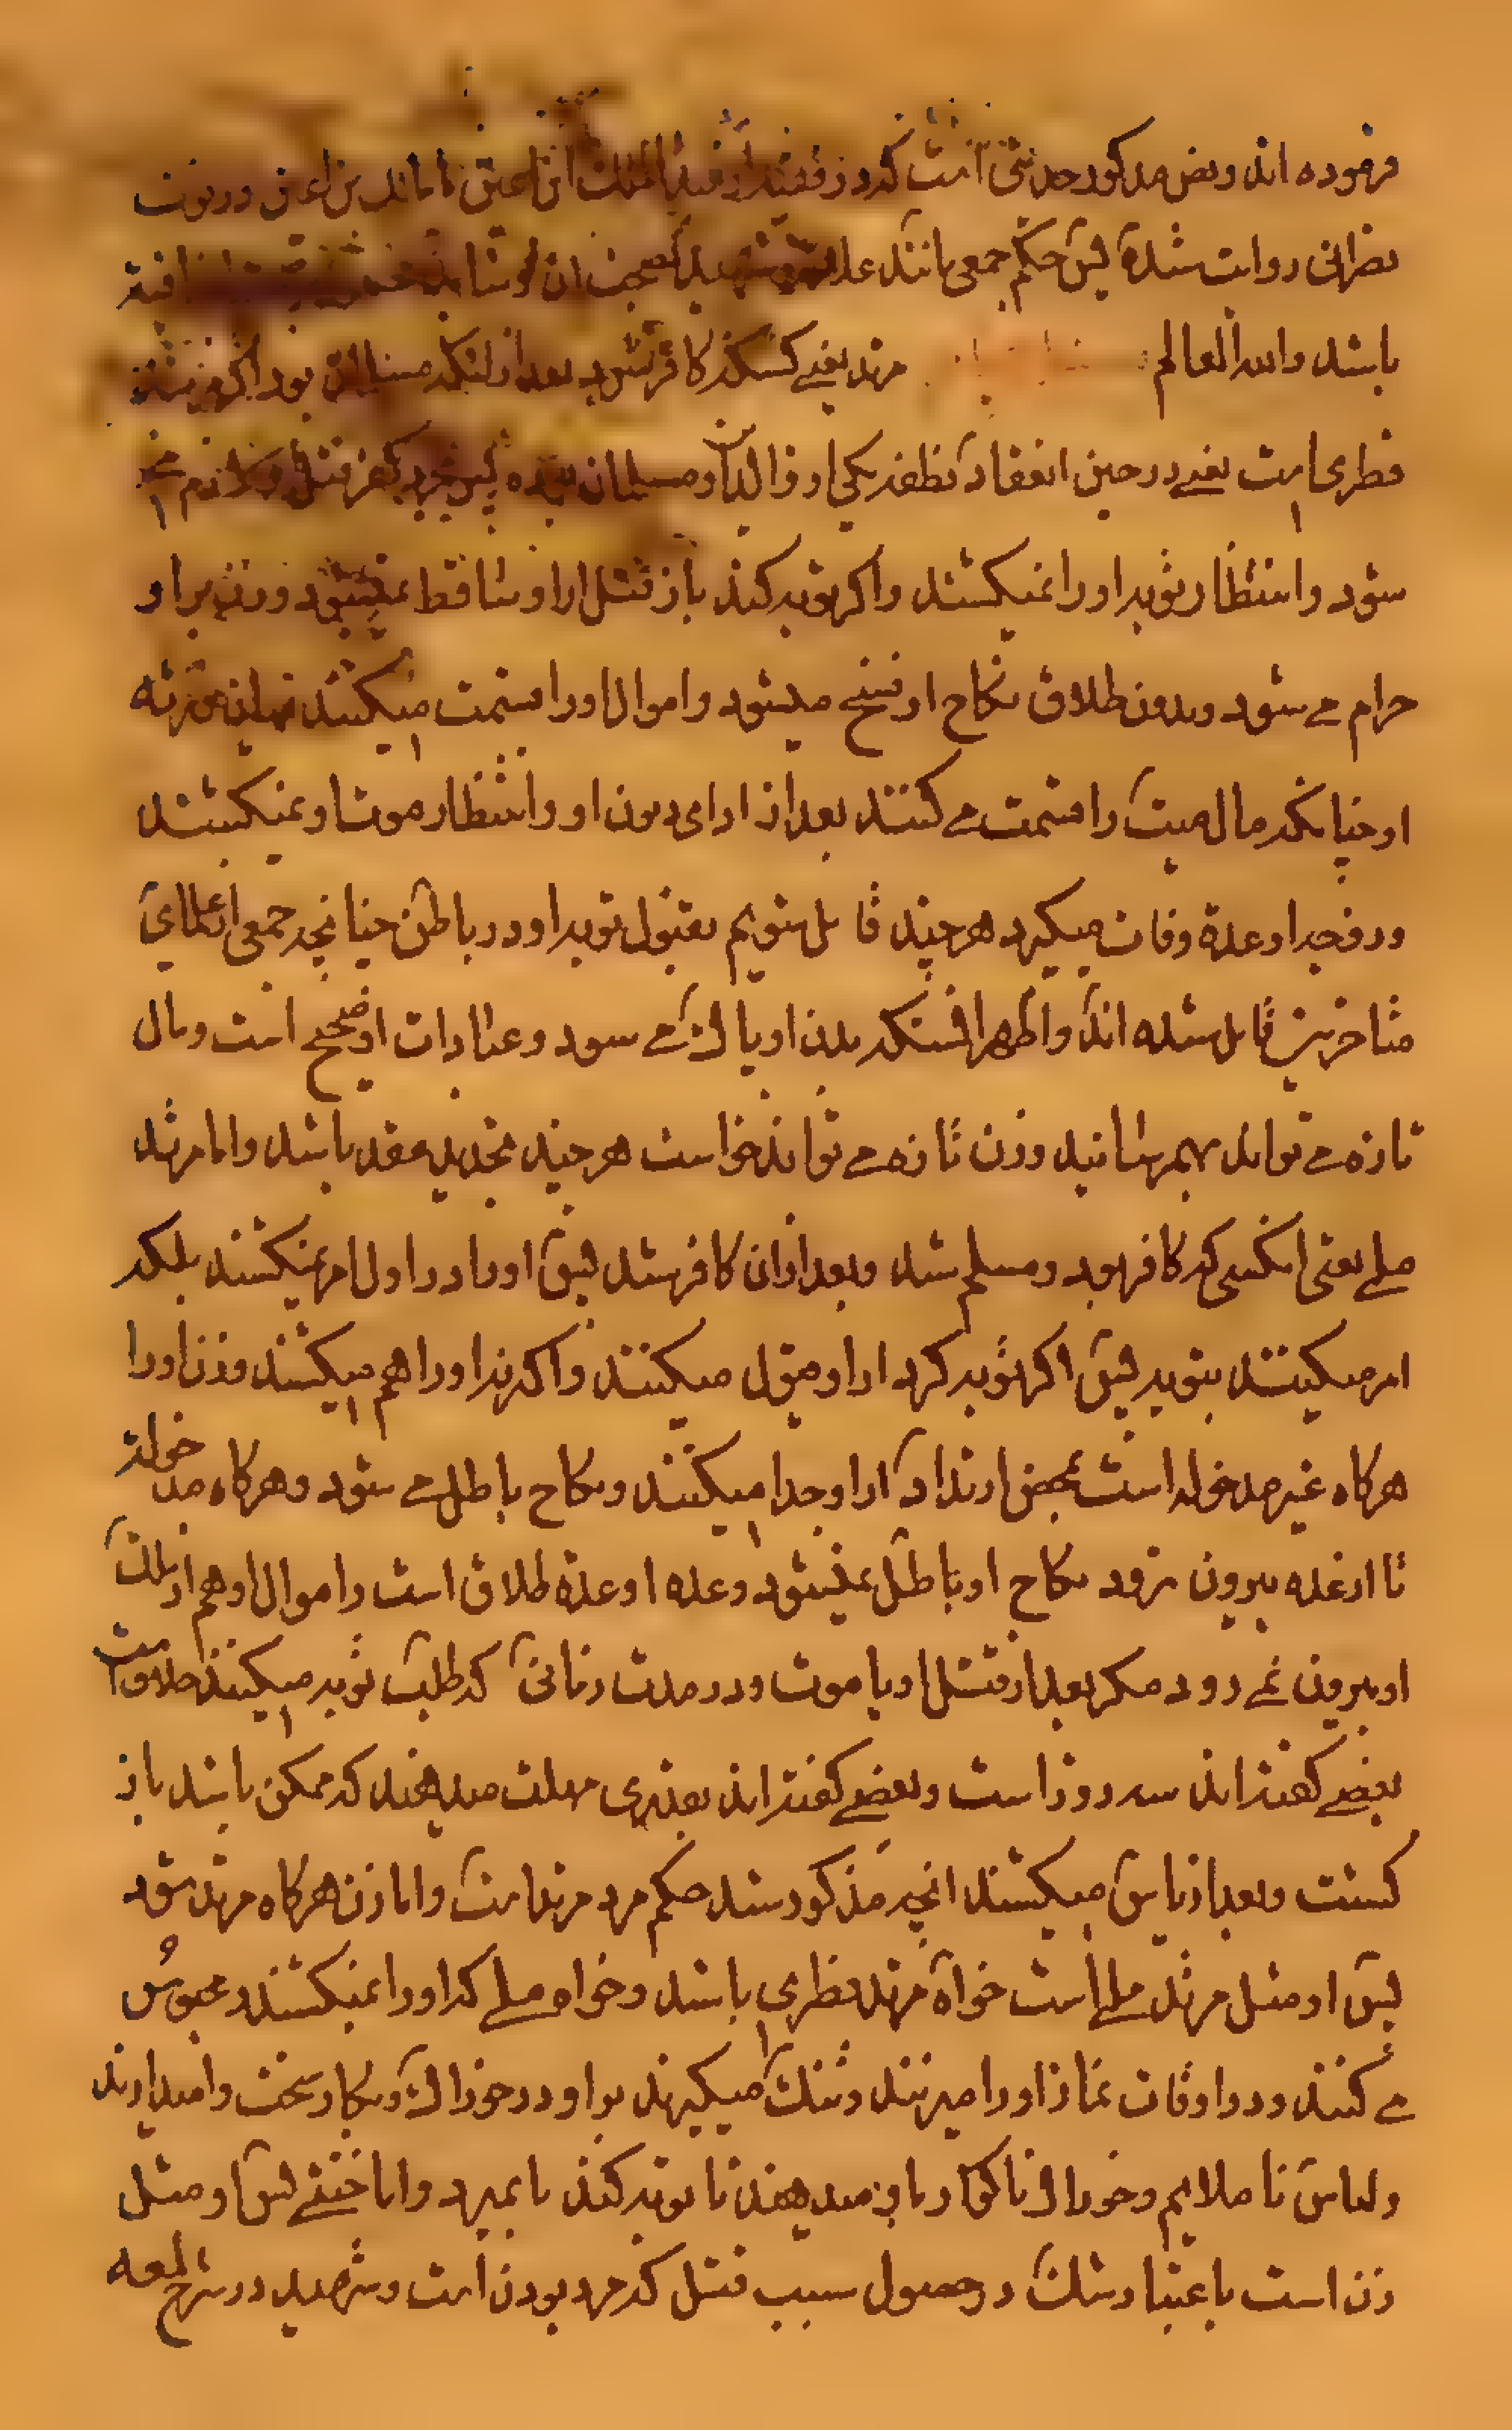 فرموده اند و نص مذکور حدیثی است که در
نصرانی روایت شده پس حکم جمعی مانند علامه و شهید
باشد والله العالم مرتد یعنی کسیکه کافر شود بعد از اینکه مسلمان بود اگر مرتد
فطری است یعنی در حین انعقاد نطفه یکی از والدین او مسلمان بوده پس بمجرد کفر قتل او لازم
شود و انتظار توبه او را نمیکشند و اگر توبه کند باز قتل از او ساقط نمیشود و زن بر او
حرام می شود و بدون طلاق نکاح او فسخ میشود و اموال او را قسمت میکنند میان ورثه
او چنانکه مال میت را قسمت می کنند بعد از ادای دیون او و انتظار موت او نمیکشند
و زوجه او عدة وفات میگیرد هر چند قایل شویم بقبول توبه او در باطن چنانچه جمعی از علمای
متاخرین قایل شده اند و اظهر انستکه بدن او پاک می شود و عبادات او صحیح است و مال
تازه می تواند بهم رسانید و زن تازه می تواند خواست هر چند تجدید عقد باشد و اما مرتد
ملی یعنی انکسی که کافر بود و مسلم شد و بعد از ان کافر شد پس او را در اول امر نمیکشند بلکه
امر میکنند بتوبه پس اگر توبه کرد از او قبول میکنند و اگر نه او را هم میکشند و زن او را
هرگاه غیر مدخوله است بمحض ارتداد از او جدا میکنند و نکاح باطل می شود و هرگاه مدخوله
تا از عده بیرون نرود نکاح او باطل نمیشود و عده او عدة طلاق است و اموال او هم از ملک
او بیرون نمی رود مگر بعد از قتل او یا موت و در مدت زمانی که طلب توبه میکنند خلاف است
بعضی گفته اند سه روز است و بعضی گفته اند بقدری مهلت میدهند که ممکن باشد باز
گشت و بعد از یاس میکشند انچه مذکور شد حکم مرد مرتد است و اما زن هرگاه مرتد شود
پس او مثل مرتد ملی است خواه مرتد فطری باشد و خواه ملی که او را نمیکشند و محبوس
می کنند و در اوقات نماز او را میزنند و تنک میگیرند بر او در خوراک و بکار سخت وامیدارند
و لباس نا ملایم و خوراک ناگوار باو میدهند تا توبه کند یا بمیرد و اما خنثی پس او مثل
زن است باعتبار شک در حصول سبب قتل که مرد بودن است و شهید در شرح لمعه